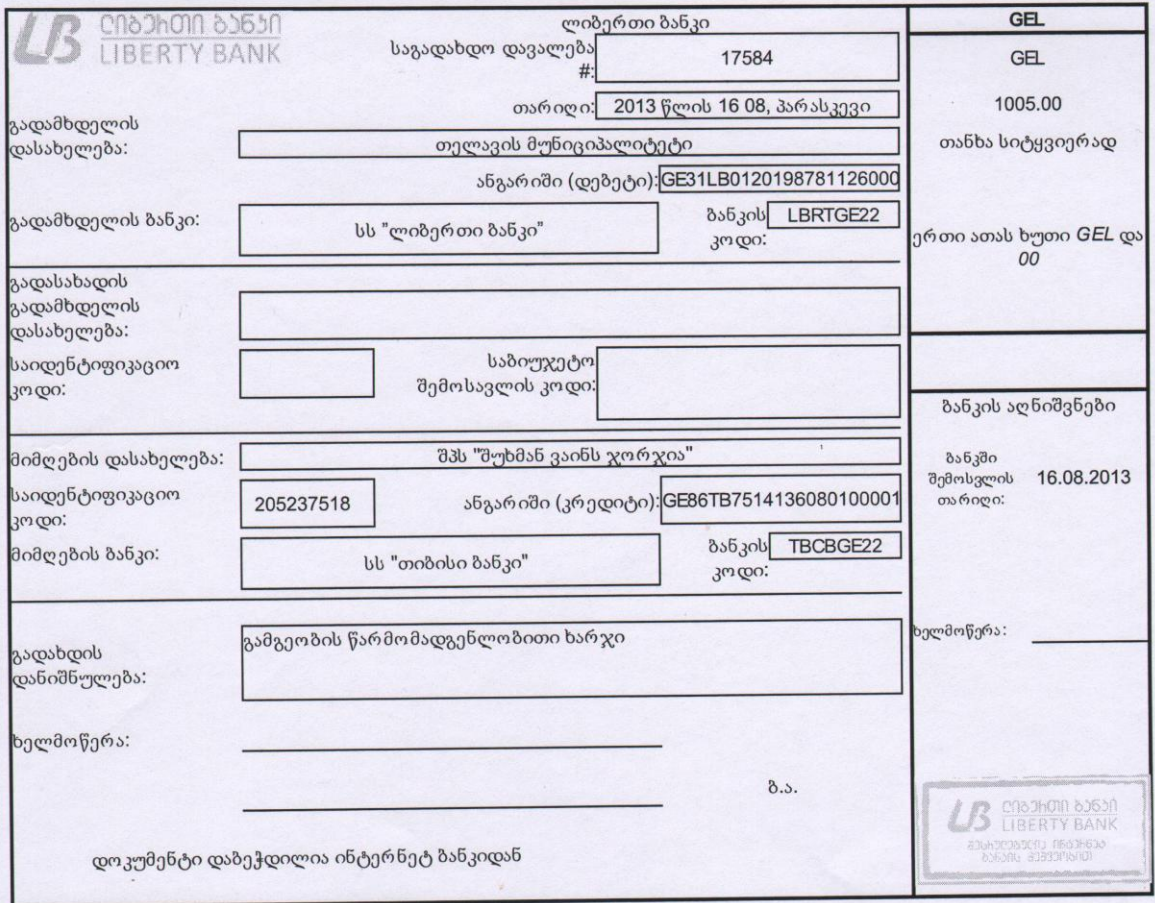 ლიბერთი ბანკი
LIBERTY BANK
ლიბერთი ბანკი
საგადახდო დავალება
#:
17584
თარიღი:
2013 წლის 16 08, პარასკევი
გადამხდელის
დასახელება:
თელავის მუნიციპალიტეტი
ანგარიში (დებეტი):
GE31LB0120198781126000
გადამხდელის ბანკი:
სს "ლიბერთი ბანკი"
ბანკის
კოდი:
LBRTGE22
გადასახადის
გადამხდელის
დასახელება:
საიდენტიფიკაციო
კოდი:
საბიუჯეტო
შემოსავლის კოდი:
მიმღების დასახელება:
შპს "შუხმან ვაინს ჯორჯია"
საიდენტიფიკაციო
კოდი:
205237518
ანგარიში (კრედიტი):
GE86TB7514136080100001
მიმღების ბანკი:
სს "თიბისი ბანკი"
ბანკის
კოდი:
TBCBGE22
გადახდის
დანიშნულება:
გამგეობის წარმომადგენლობითი ხარჯი
ხელმოწერა:
ბ.ა.
დოკუმენტი დაბეჭდილია ინტერნეტ ბანკიდან
GEL
GEL
1005.00
თანხა სიტყვიერად
ერთი ათას ხუთი GEL და
00
ბანკის აღნიშვნები
ბანკში
შემოსვლის
თარიღი:
16.08.2013
ხელმოწერა:
ლიბერთი ბანკი
LIBERTY BANK
შესრულებულია ინტერნეტ
ბანკის მეშვეობით